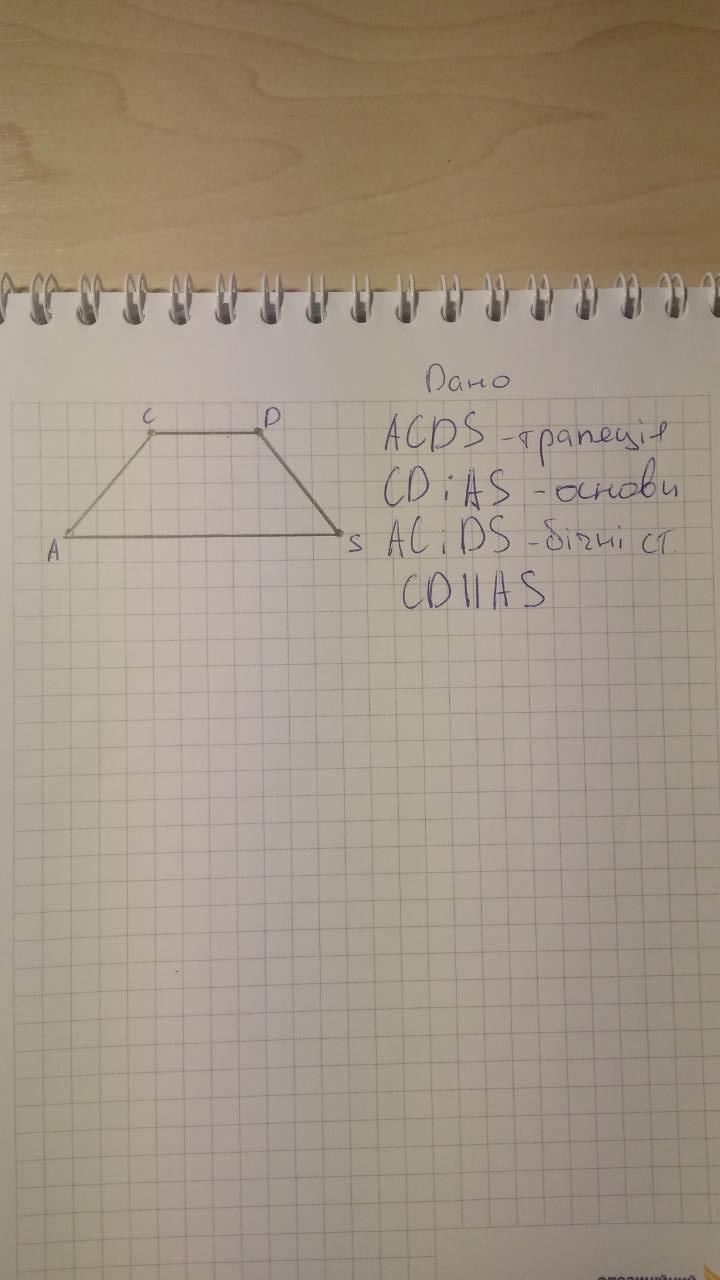 Дано
C D
ACDS - трапеція
CD i AS - основи
A S
AC i DS - бічні ст.
CD || AS
опозиційний